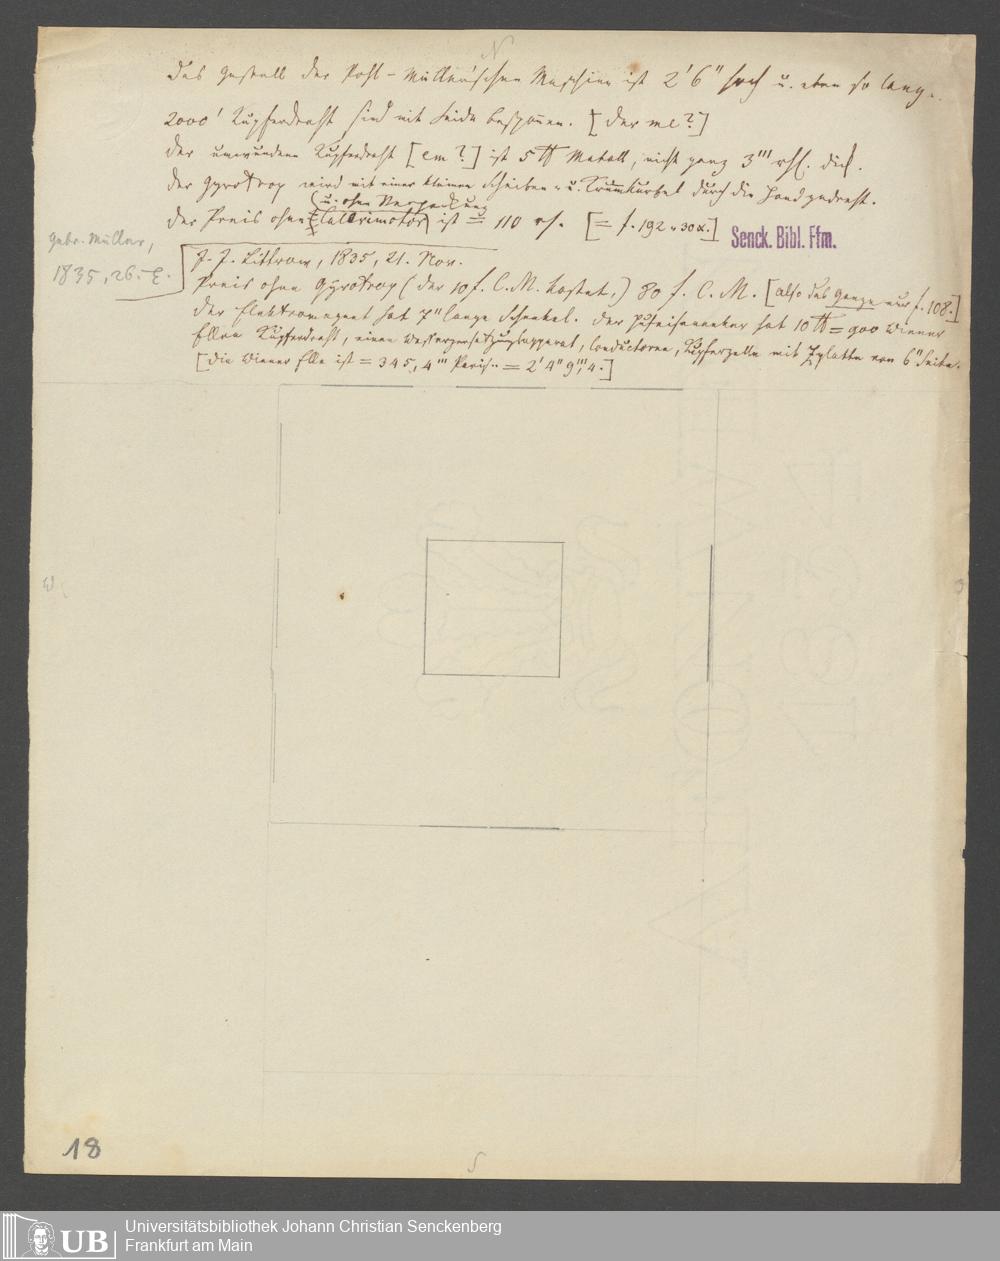 N
Das Gestell der Pohl-Müller'schen Maschine ist 2' 6" hoch u. eben so lang.
2000' Kupferdraht sind mit Seide besponnen. [der me?]
Der umwundene Kupferdraht [em?] ist 5 ℔ Metall, nicht ganz 3''' rhl. dick.
Der Gyrotrop wird mit einer kleinen Scheibe u. Krummkurbel durch die Hand gedreht.
(u. ohne Verpackung
Der Preis ohne Calorimotor) ist = 110 rh. [= f. 192 " 30 x.]
Senck. Bibl. Ffm.
Gebr. Müller,
1835, 26.
J. J. Littrow, 1835, 21. Nov.
Preis ohne Gyrotrop (der 10 f. C. M. kostet,) 80 f. C. M. [also das Ganze nur f. 108.]
Der Elektromagnet hat 7" lange Schenkel. Der Hufeisenanker hat 10 ℔ = 900 Wiener
Ellen Kupferdraht, einen Wasserzersetzungsapparat, Conductoren, Kupferzelle mit Zplatte von 6" Seite.
[Die Wiener Elle ist = 345, 4''' Paris. = 2' 4" 9''', 4.]
W
O
18
S
UB
Universitätsbibliothek Johann Christian Senckenberg
Frankfurt am Main